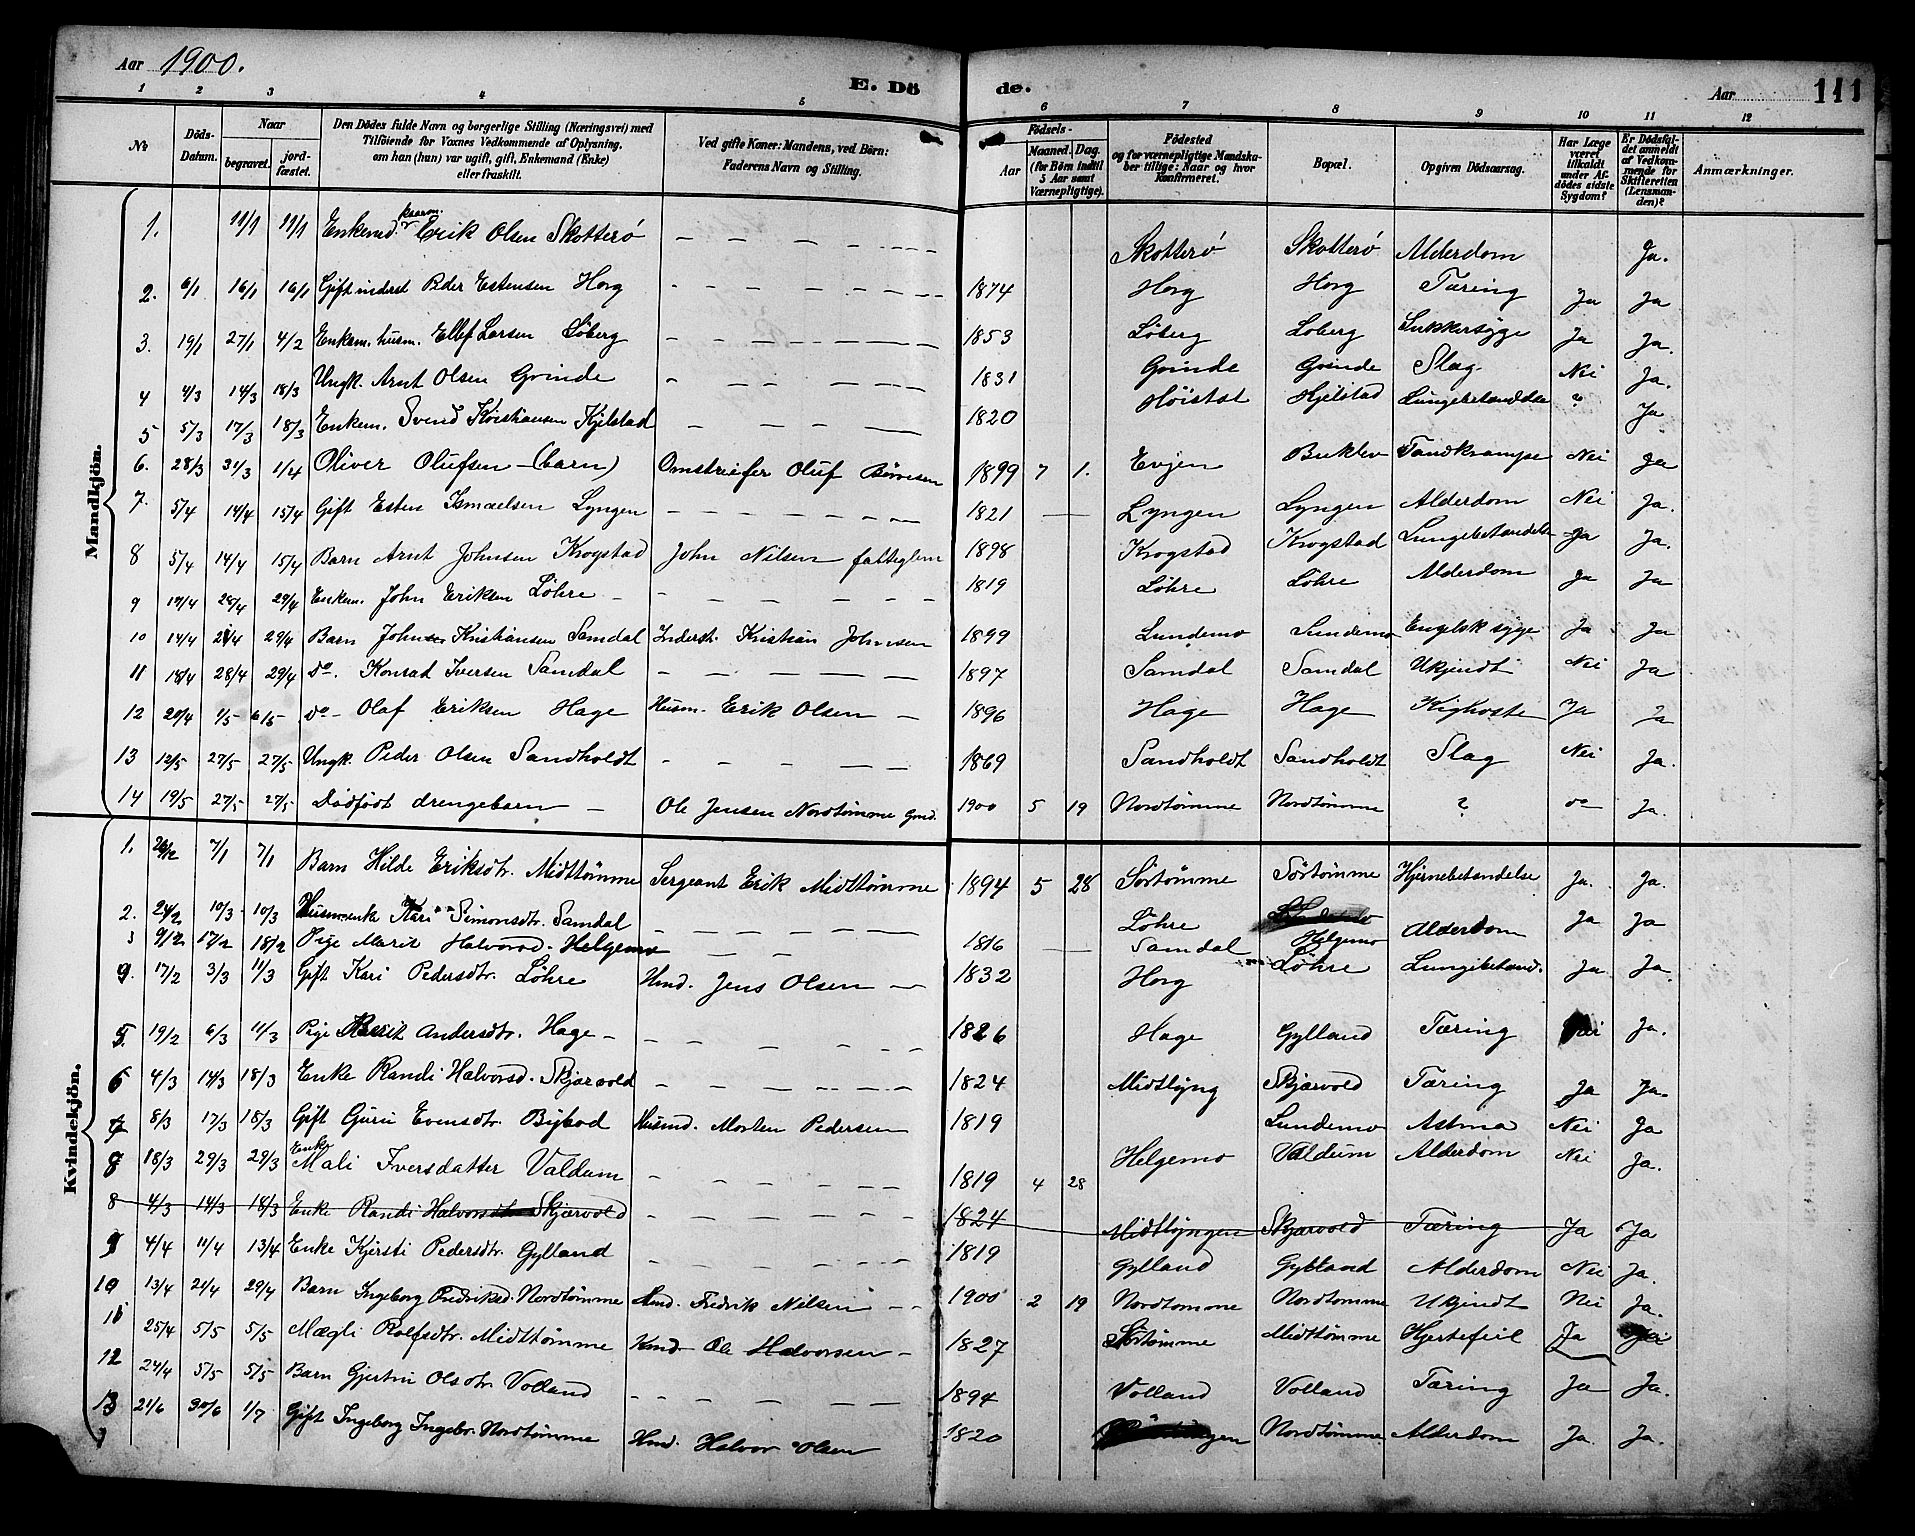 Aar 1900.
E. Dö
de.
Aar
111
1 2 3 4 5 6 7 8 9 10 11 12
No
Döds-Datum.
Naar
begravet.
jord-fæstet.
Den Dödes fulde Navn og borgerlige Stilling (Næringsvei) med
Tilföiende for Voxnes Vedkommende af Oplysning,
om han (hun) var ugift, gift, Enkemand (Enke)
eller fraskilt.
Ved gifte Koner: Mandens, ved Börn:
Faderens Navn og Stilling.
Födsels-
Aar
Maaned. Dag.
(for Börn indtil
5 Aar samt
Værnepligtige).
Födested
og for værnepligtige Mandska-
ber tillige: Naar og hvor
konfirmeret.
Bopæl.
Opgiven Dödsaarsag.
Har Læge
været
tilkaldt
under Af-
dödes sidste
Sygdom?
Er Dödsfal-
det anmeldt
af Vedkom-
mende for
Skifteretten
(Lensman-
den)?
Anmærkninger.
Mandkjön.
1. 11/1 11/1 Enkemd. kaarm. Erik Olsen Skotterö — Skotterö Skotterö Alderdom Ja.
2. 6/1 16/1 16/1 Gift inderst Peder Estensen Horg — 1874 Horg Horg Tæring Ja Ja
3. 19/1 27/1 4/2 Enkem. husm. Ellef Larsen Löberg — 1853 Löberg Loberg Sukkersyge Ja Ja.
4 4/3 14/3 18/3 Ungk. Arnt Olsen Grinde — 1831 Grinde Grinde Slag. Nei Ja.
5 5/3 17/3 18/3 Enkem. Svend Kristiansen Kjelstad — 1820 Hjelstad ? Ja
6. 28/3 31/3 1/4 Oliver Olufsen — (barn) Omstreifer Oluf 1899 7 1. Evjen Buklev Tandkrampe Nei Ja
7. 5/4 14/4 15/4 Gift Esten Ismaelsen Lyngen — 1821 — Lyngen Lyngen Alderdom Nei Ja.
8 5/4 14/4 15/4 Barn Arnt Johnsen Krogstad John Nilsen fatteglem 1898 Krogstad Krogstad Lungebetændelse Ja Ja.
9 28/4 29/4 Enkem. John Eriksen Löhre — 1819 Löhre Löhre Alderdom Ja Ja
10 14/4 29/4 Barn Kristiansen Samdal Inderst. Kristian Johnsen 1899 Lundemo Lundemo Engelsk syge Ja Ja
11 18/4 28/4 29/4 do. Konrad Iversen Samdal — 1897 Samdal Samdal Ukjendt Nei Ja
12 20/4 1/5 6/5 do — Olaf Eriksen Hage Husm. Erik Olsen — 1896 Hage Hage Kighoste Ja Ja
13 12/5 27/5 27/5 Ungk. Peder Olsen Sandholdt — 1869 Sandholdt Sandholdt Slag Nei Ja.
14 19/5 27/5 27/5 Dödfödt drengebarn — Ole Jensen Nordtömme Gmd. 1900 5 19 Nordtömme Nordtömme ? do Ja.
Kvindekjön.
1. 7/1 7/1 Barn Hilde Eriksdtr. Midttömme Sergeant Erik Midttömme 1894 5 28 Sörtömme Sörtömme Hjernebetændelse Ja. Ja.
2. 24/2 10/3 10/3 Husmenk Kari Simonsdtr. Samdal — Löhre Ja Ja
3 9/2 17/2 18/2 Pige Marit Halvorsd. Helgemo — 1816 — Samdal Helgemo Alderdom
9. 17/2 3/3 11/3 Gift Kari Pedersdtr. Löhre Hmd. Jens Olsen — 1832 Horg Löhre Lungebetænd. Ja Ja.
5. 19/2 6/3 11/3 Pige Berit Andersdtr. Hage — 1826 Hage Gylland Tæring Nei Ja.
6 4/3 14/3 18/3 Enke Randi Halvorsd. Skjærvold — 1824 Midtlyng Skjærvold Tæring Ja Ja.
7 8/3 17/3 18/3 Gift Guru Evensdtr. Husmd. Morten Pedersen 1819 Lundemo Astma Nei Ja
8 18/3 29/3 29/3 Enke Mali Iversdatter Valdum — 1819 4 28 Helgemo Valdum Alderdom Nei Ja.
8 4/3 14/3 18/3 Enke Randi Halvorsdtr Skjærvold — 1824 Midtlyngen Skjærvold Tæring Ja Ja
9 4/4 11/4 13/4 Enke Kjersti Pedersdtr. Gylland — 1819 Gylland Gylland Alderdom Nei Ja.
10 13/4 21/4 29/4 Barn Ingeborg Fredriksd. Nordtömme Hmd. Fredrik Nilsen — 1900 2 19 Nordtomme Nordtomme Ukjendt Nei Ja.
11 25/4 5/5 5/5 Mægli Rolfsdtr. Midttömme Kmd. Ole Halvorsen — 1827 Sörtömme Midttömme Hjertefeil Ja
12 24/4 5/5 5/5 Barn Gjertru Olsdtr. Volland — 1894 Volland Volland Tæring Ja Ja.
13 21/6 30/6 1/7 Gift Ingeborg Ingebr. Nordtömme Hmd. Halvor Olsen 1820 Nordtömme Alderdom Ja. Ja.